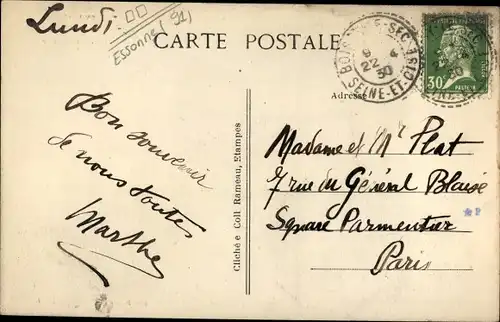 Lundi
Essonne (91)
CARTE POSTALE
SEINE-ET-OISE
22 4
30
30c
PASTEUR
Adresse
Bon souvenir
de nous toutes
Marthe
Cliché e Coll Rameau, Etampes
Madame et Mr Plat
7 rue du Général Blaise
Square Parmentier
Paris